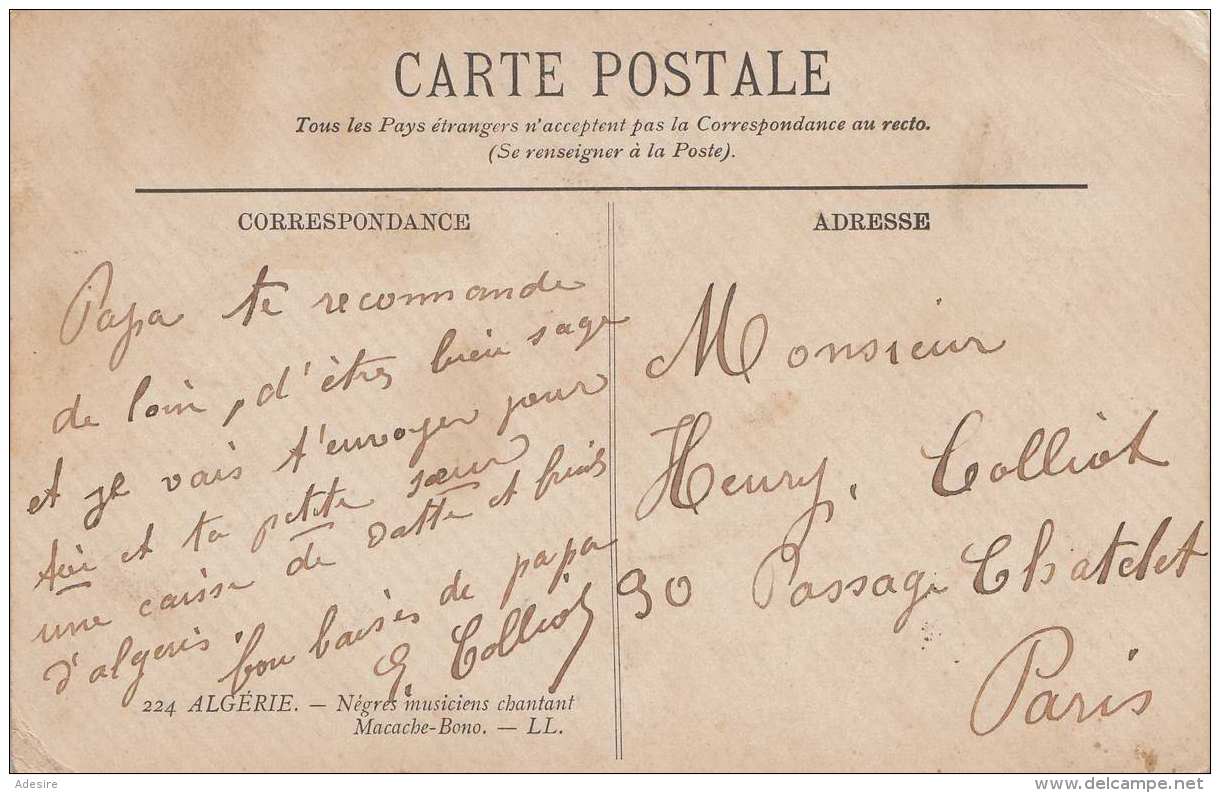 CARTE POSTALE
Tous les Pays étrangers n'acceptent pas la Correspondance au recto.
(Se renseigner à la Poste).
CORRESPONDANCE
Papa te recommande
de loin, d'êtres bien sage
et je vais t'envoyer pour
toi et ta petite sœur
une caisse de datte et
d'algeris.
bon baisés de papa
G Colliot
224 ALGÉRIE. — Nègres musiciens chantant
Macache-Bono. — LL.
ADRESSE
Monsieur
Henry, Colliot
30 Passage Chatelet
Paris
Adesire
delcampe.net